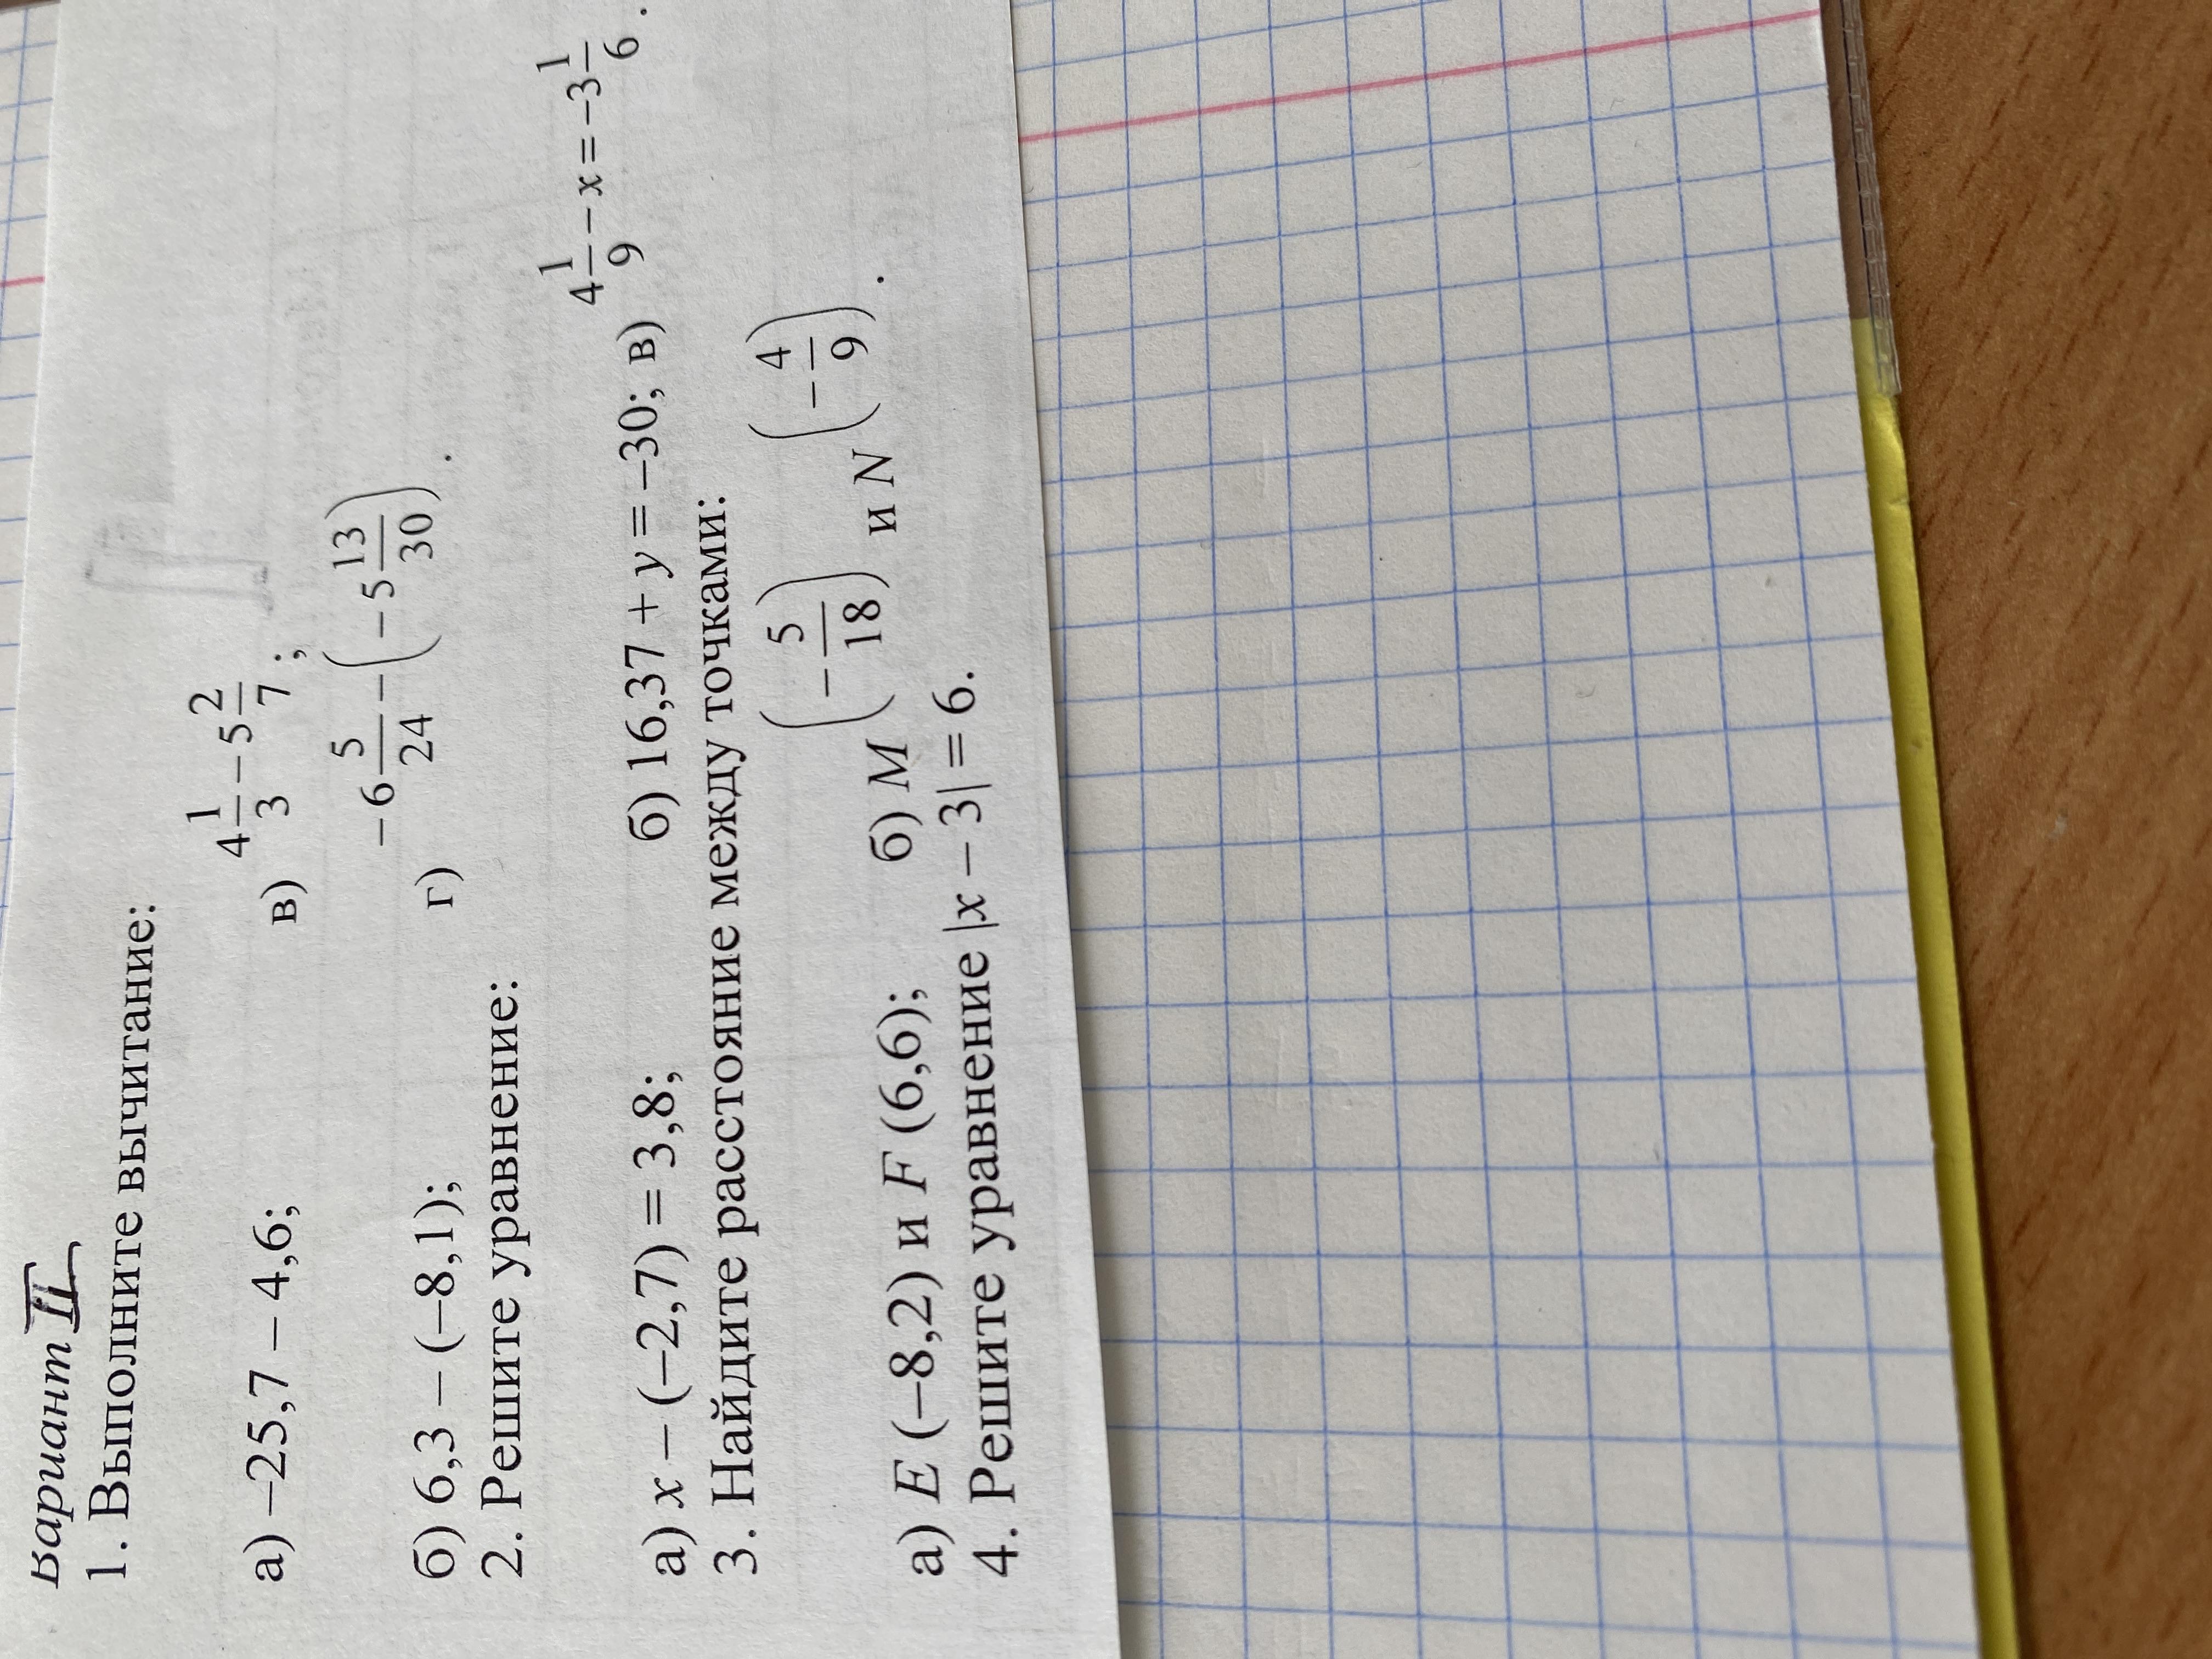 Вариант II
1. Выполните вычитание:
а) −25,7 − 4,6; в) 4 1/3 − 5 2/7;
б) 6,3 − (−8,1); г) −6 5/24 − (−5 13/30).
2. Решите уравнение:
а) x − (−2,7) = 3,8; б) 16,37 + y = −30; в) 4 1/9 − x = −3 1/6.
3. Найдите расстояние между точками:
а) E (−8,2) и F (6,6); б) M (−5/18) и N (−4/9).
4. Решите уравнение |x − 3| = 6.